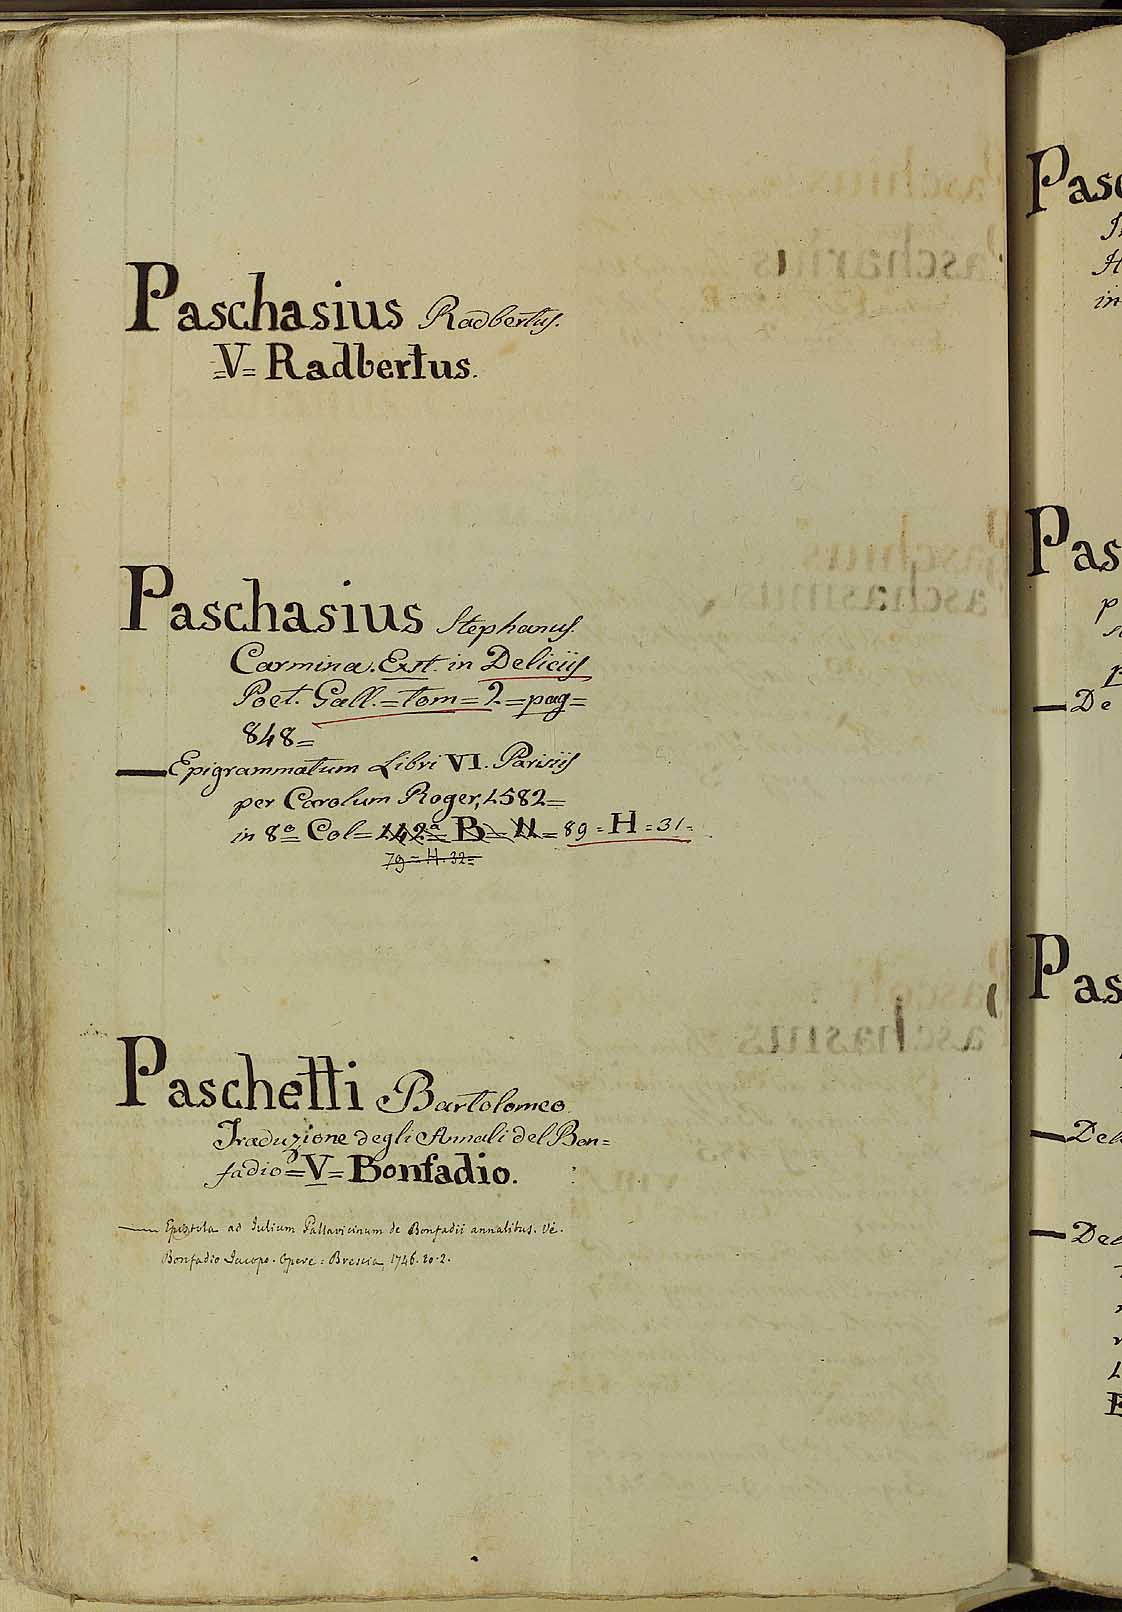 Paschasius Radbertus.
=V= Radbertus.
Paschasius Stephanus.
Carmina. Exst. in Deliciis
Poet. Gall. = tom = 2 = pag =
848 =
— Epigrammatum Libri VI. Parisiis
per Carolum Roger, 1582 =
in 8º = Col = 142ª = B = 11 = 89 = H = 31 =
79 = H. 32 =
Paschetti Bartolomeo
Traduzione degli Annali del Bon=
fadio = V = Bonfadio.
— Epistola ad Julium Pallavicinum de Bonfadii annalibus. Vè.
Bonfadio Jacopo. Opere: Brescia, 1746. to. 2.
Pas
Pas
— De
Pas
— Del
— Del